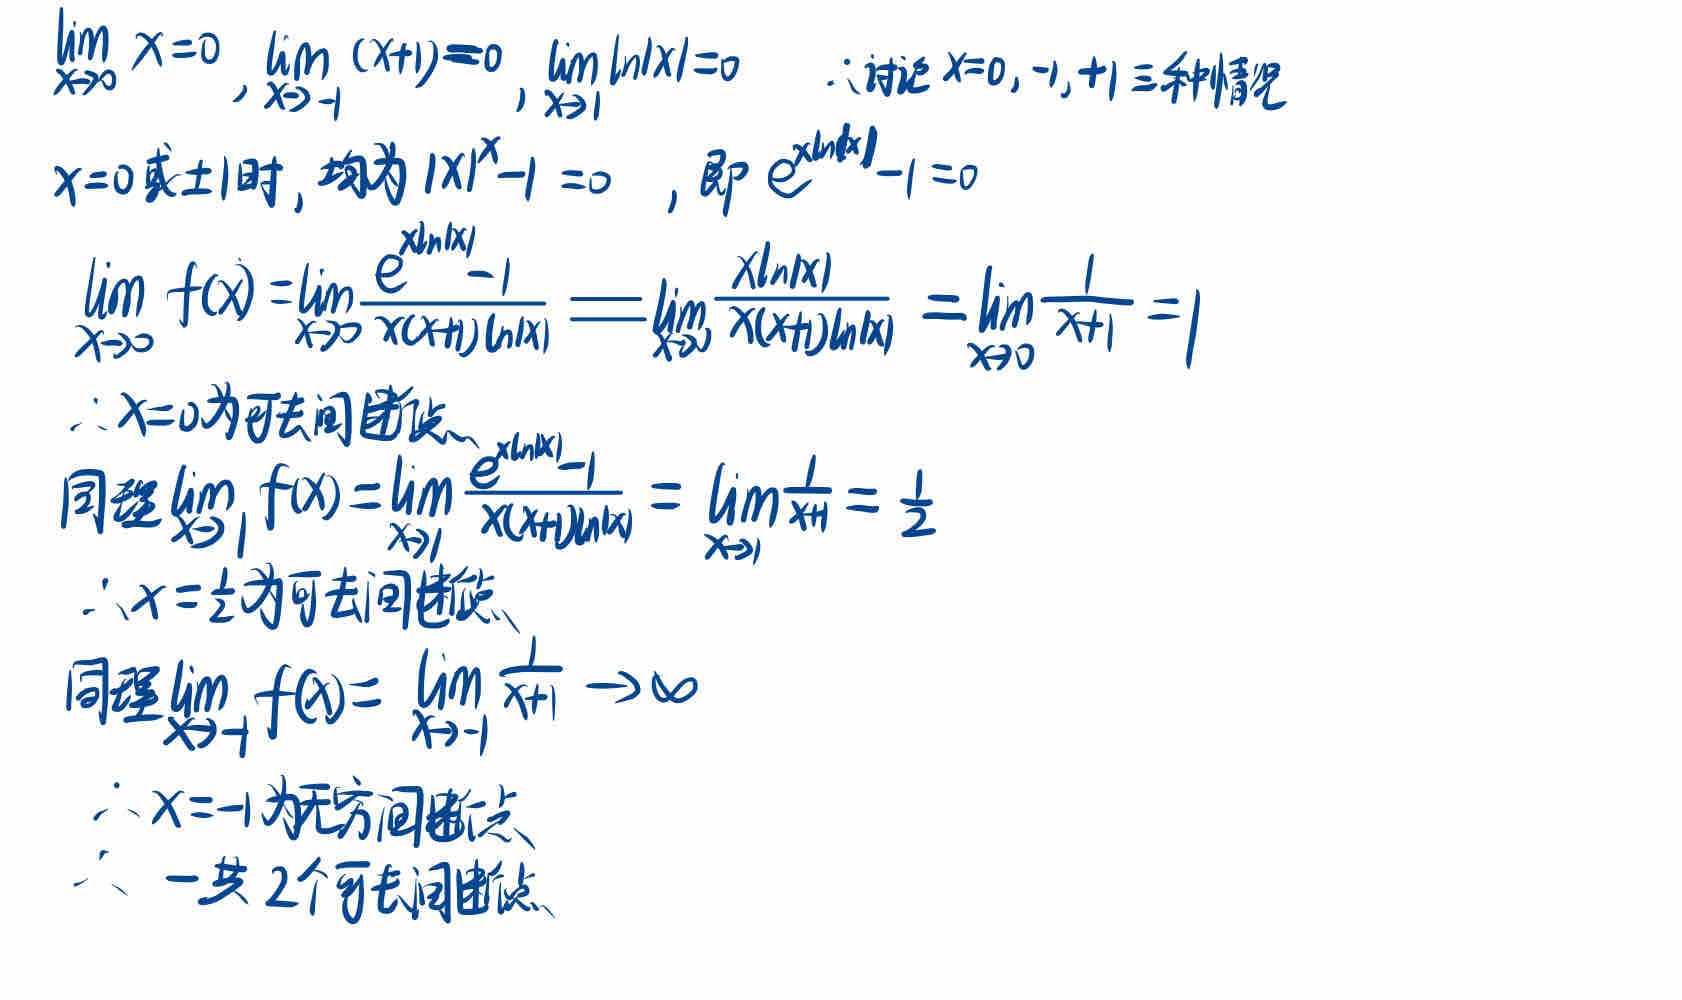 lim x→0 x=0, lim x→-1 (x+1)=0, lim x→1 ln|x|=0 ∴讨论 x=0,-1,+1三种情况
x=0或±1时,均为 |x|^x-1=0,即 e^{xln|x|}-1=0
lim x→0 f(x)=lim x→0 (e^{xln|x|}-1)/(x(x+1)ln|x|)=lim x→0 (xln|x|)/(x(x+1)ln|x|)=lim x→0 1/(x+1)=1
∴x=0为可去间断点、
同理 lim x→1 f(x)=lim x→1 (e^{xln|x|}-1)/(x(x+1)ln|x|)=lim x→1 1/(x+1)=1/2
∴x=1/2为可去间断点、
同理 lim x→-1 f(x)=lim x→-1 1/(x+1)→∞
∴x=-1为无穷间断点、
∴一共2个可去间断点、